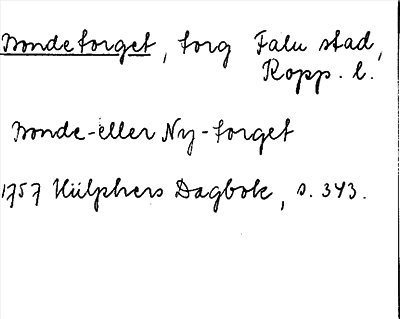 Bondetorget, torg Falu stad,
Kopp. l.
Bonde- eller Ny-torget
1757 Hülphers Dagbok, s. 343.